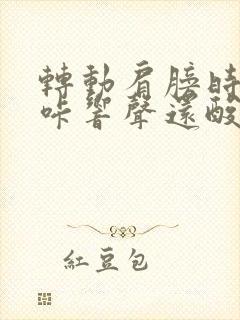 轉動肩膀時
咔響聲還酸
紅豆包